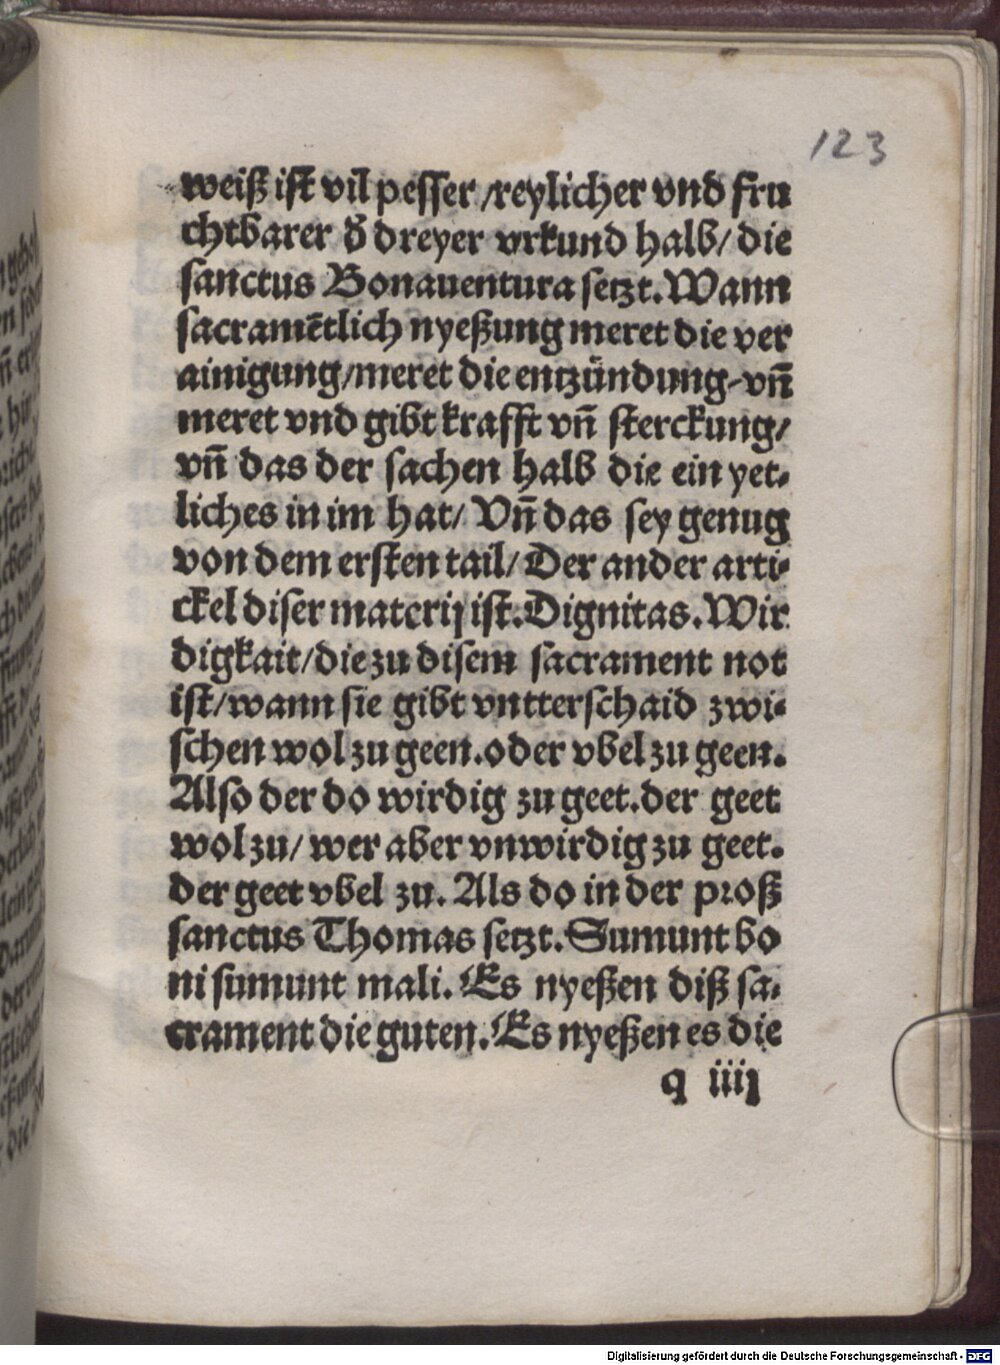 123
weiß ist vil pesser/reylicher vnd fru
chtbarer d̄ dreyer vrkund halb/die
sanctus Bonauentura setzt. Wann
sacramētlich nyeßung meret die ver
ainigung/meret die entzündung-vn̄
meret vnd gibt krafft vn̄ sterckung/
vn̄ das der sachen halb die ein yet-
liches in im hat/Vn̄ das sey genug
von dem ersten tail/Der ander arti-
ckel diser materij ist. Dignitas. Wir
digkait/die zu disem sacrament not
ist/wann sie gibt vntterschaid zwi-
schen wol zu geen. oder vbel zu geen.
Also der do wirdig zu geet. der geet
wol zu/wer aber vnwirdig zu geet.
der geet vbel zu. Als do in der proß
sanctus Thomas setzt. Sumunt bo
ni sumunt mali. Es nyeßen diß sa-
crament die guten. Es nyeßen es die
q iiij
Digitalisierung gefördert durch die Deutsche Forschungsgemeinschaft - DFG